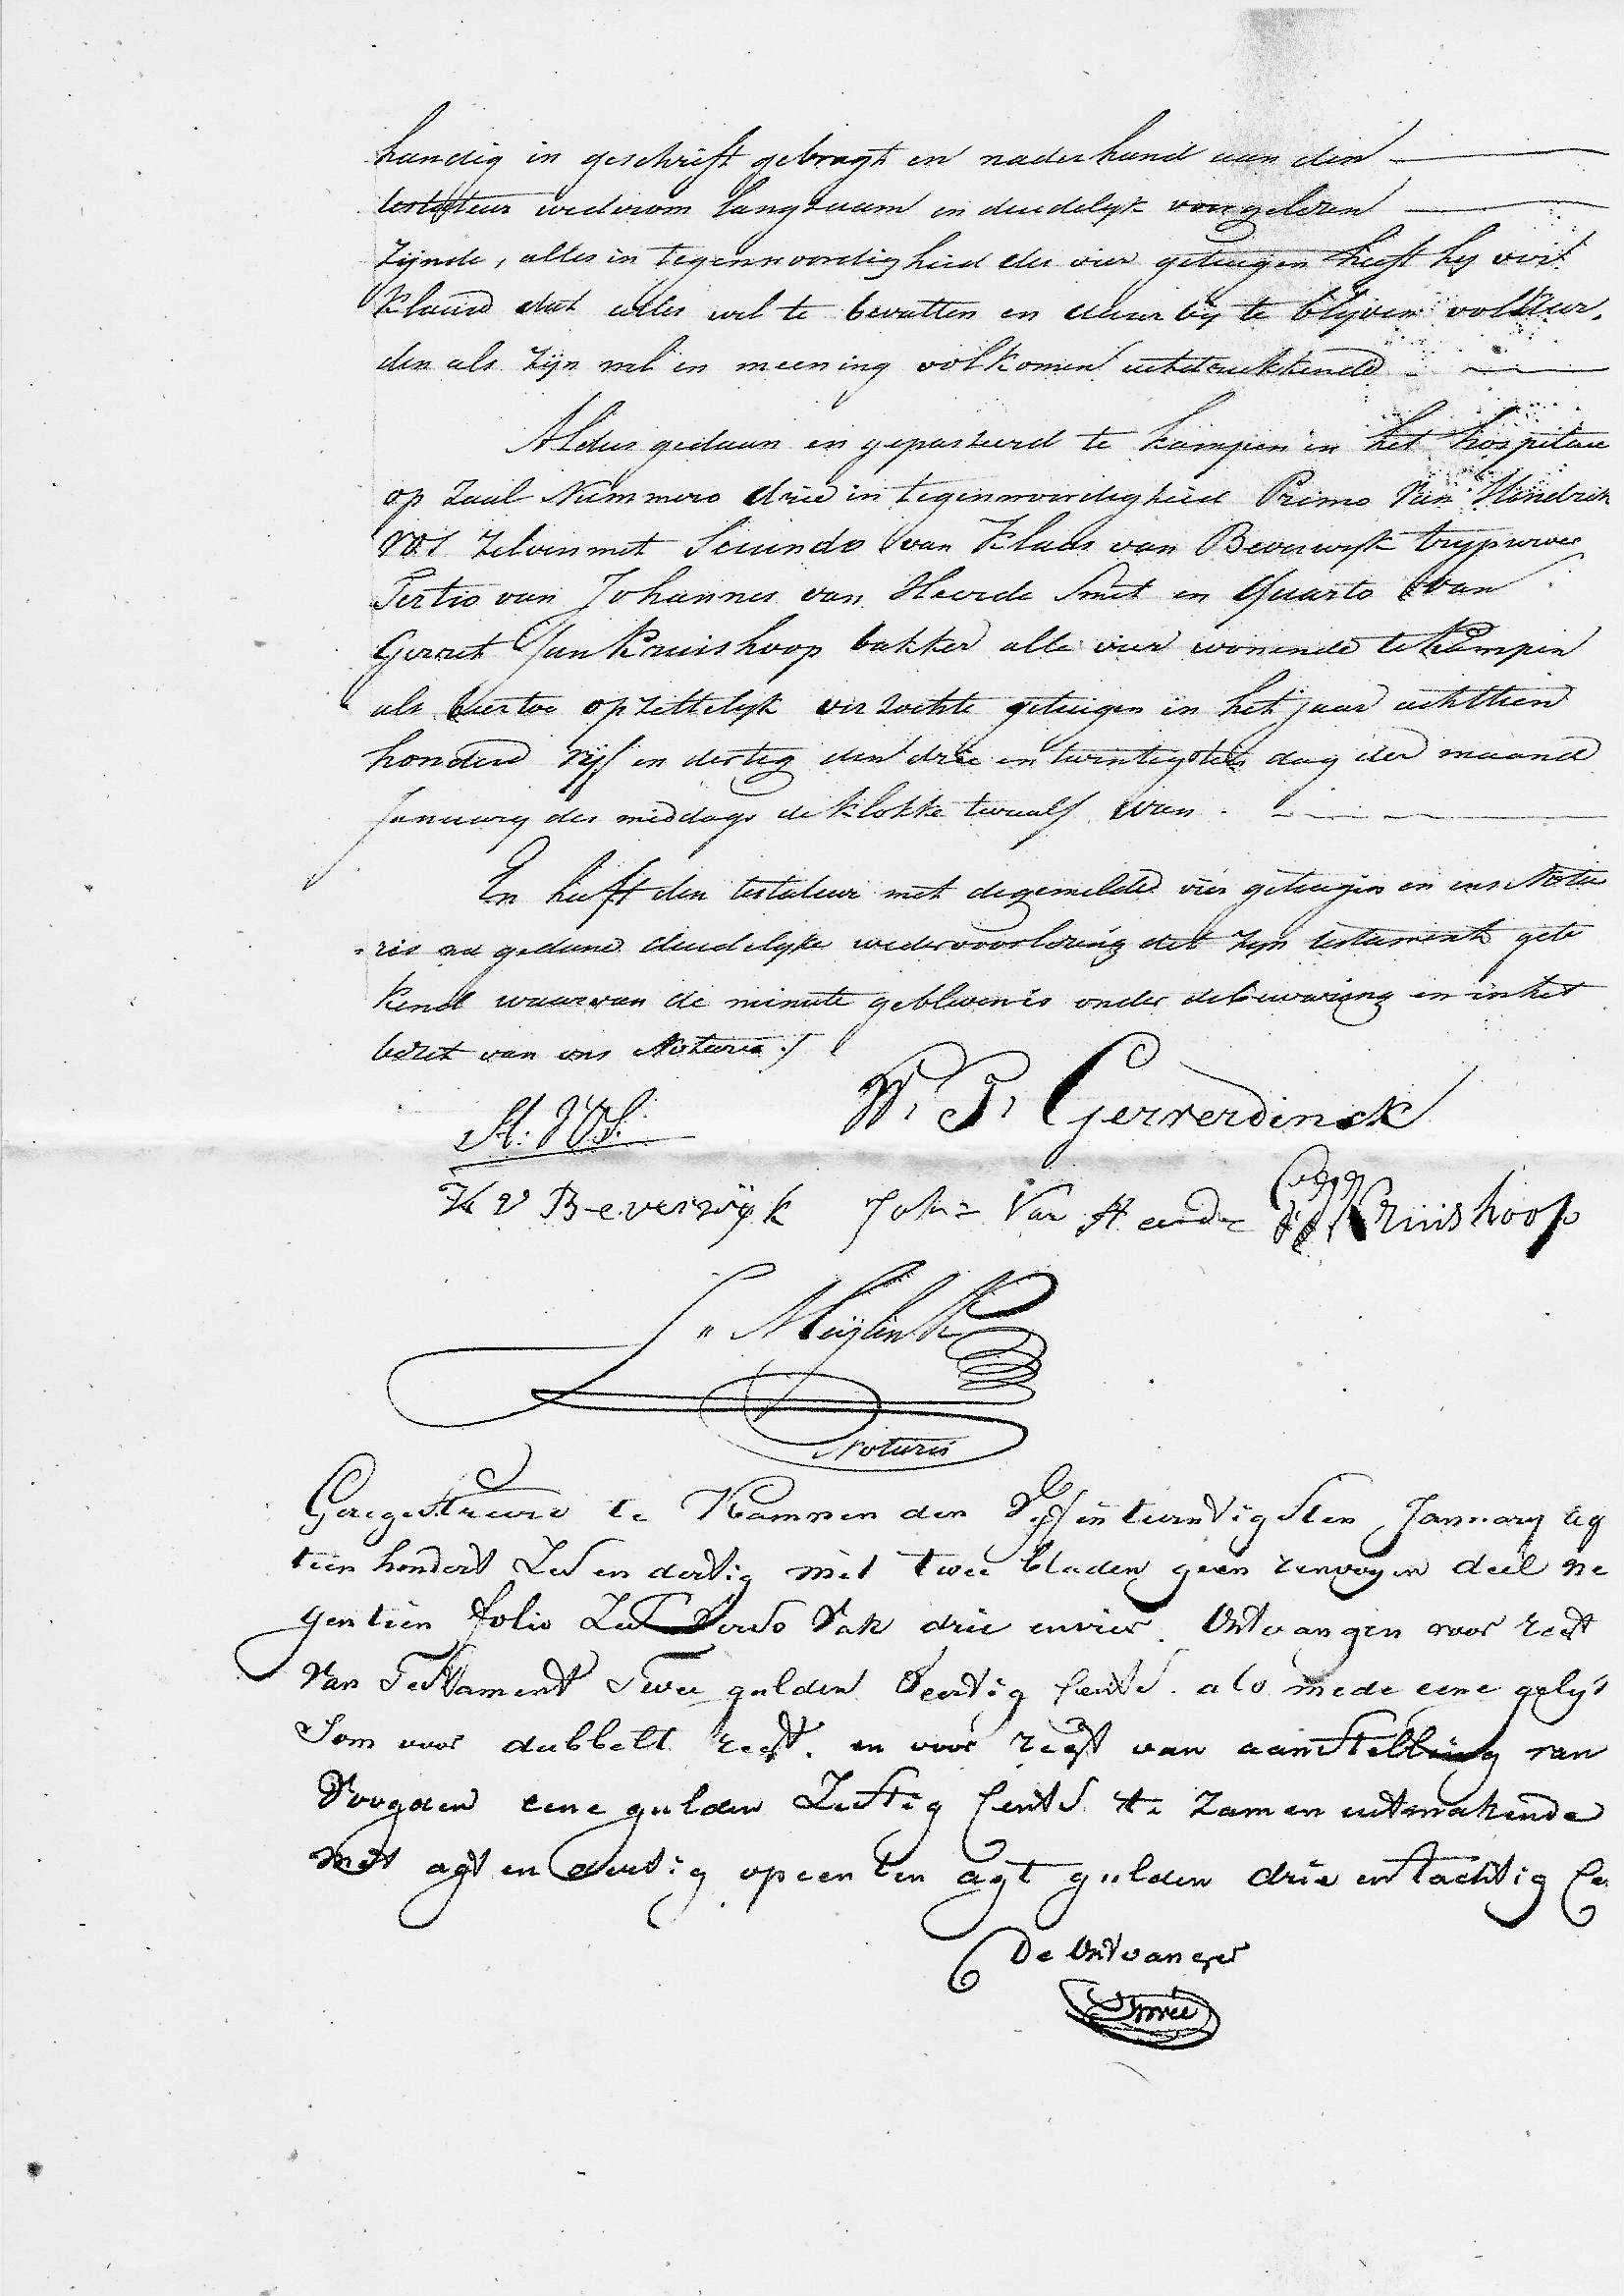 handig in geschrift gebragt en naderhand aan den
testateur wederom langzaam en duidelijk voorgelezen
zijnde, alles in tegenwoordigheid der vier getuigen heeft hij ver
klaard dat alles wel te bevatten en daar bij te blijven volhar,
den als zijn wil en meening volkomen uitdrukkende
Aldus gedaan en gepasseerd te Kampen in het hospitaal
op zaal Nummero drie in tegenwoordigheid Primo van Hendrik
Vos zilversmit Secundo van Klaas van Beverwijk trijpwever
Tertio van Johannes van Heerde Smit en Quarto van
Gerrit Jan Kruishoop bakker alle vier wonende te Kampen
als hiertoe opzettelijk verzochte getuigen in het jaar achttien
honderd vijf en dertig den drie en twintigsten dag der maand
January des middags de klokke twaalf uren.
En heeft den testateur met de gemelde vier getuigen en ons Nota
ris na gedane duidelijke wedervoorlezing dit zijn testament gete
kend waarvan de minute gebleven is onder de bewaring en in het
bezit van ons Notaris ./
W. P. Gerverdinck
H. VOS.
K v Beverwijk Joh= Van Heerde GJ Kruishoop
L" Meijlink
Notaris
Geregistreerd te Kampen den Vyfentwintigsten January ag
tien hondert Zes en dertig met twee bladen geen renvoyen deel ne
gentien folio Zes Verso Vak drie en vier. Ontvangen voor regt
van Testament Twee gulden Veertig Cents. als mede eene gelijke
Som voor dubbelt regt. en voor regt van aanstelling van
Voogden eene gulden Zestig Cents te zamen uitmakende
met agt en dertig opcenten agt gulden drie en tachtig Ce
De Ontvanger